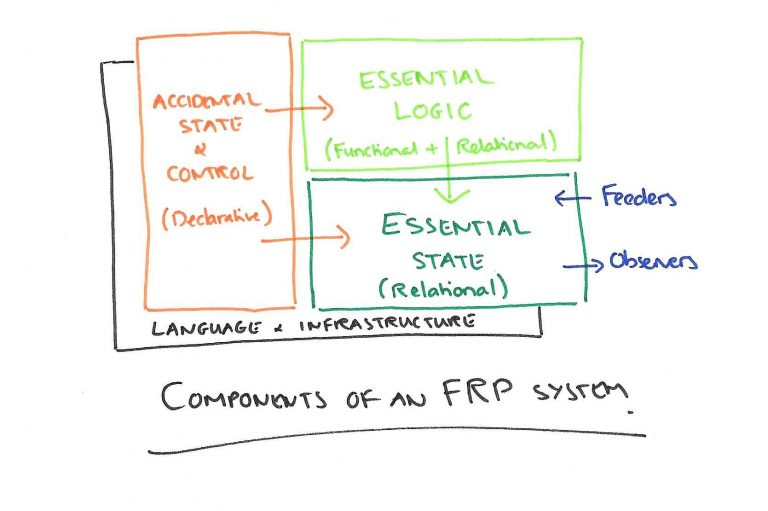 ACCIDENTAL
STATE
&
CONTROL
(Declarative)
ESSENTIAL
LOGIC
(Functional + Relational)
ESSENTIAL
STATE
(Relational)
Feeders
Observers
LANGUAGE & INFRASTRUCTURE
COMPONENTS OF AN FRP SYSTEM.